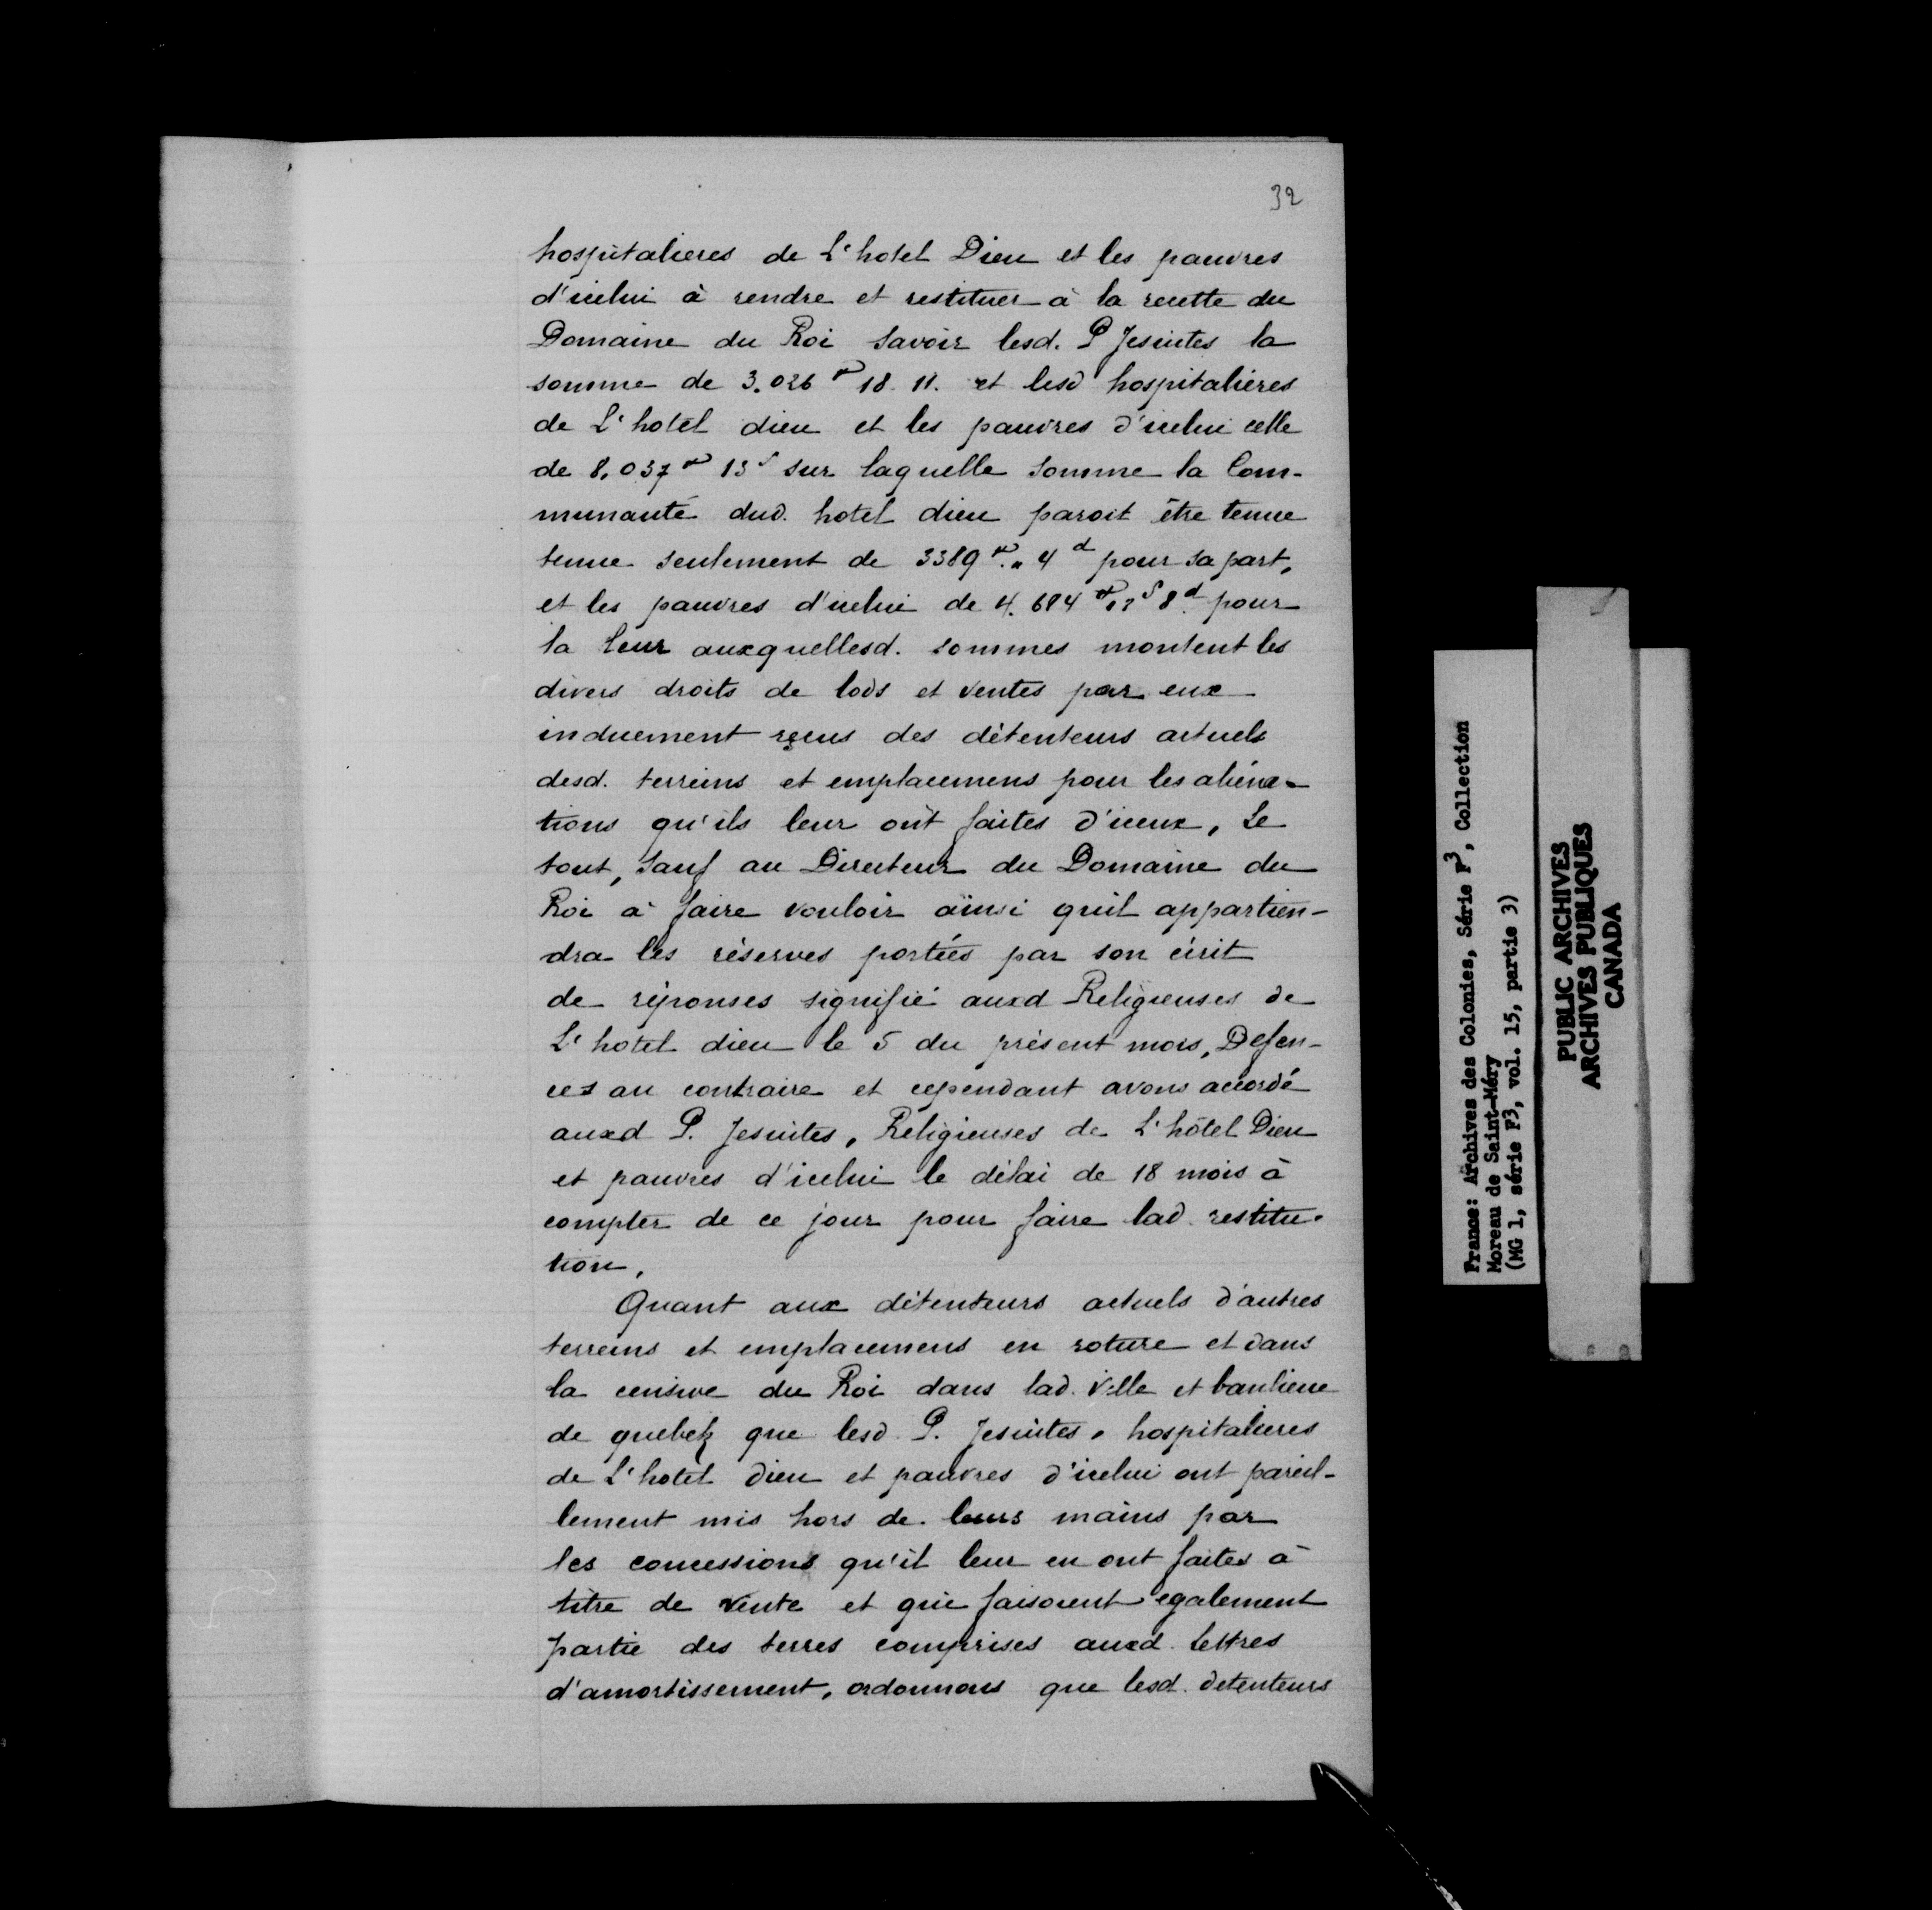 32
hospitalieres de L'hotel Dieu et les pauvres
d'icelui à rendre et restituer à la recette du
Domaine du Roi Savoir lesd. P Jesuites la
somme de 3.026 ₶ 18. 11. et lesd hospitalières
de L'hotel dieu et les pauvres d'icelui celle
de 8,037 ₶ 13 s sur laquelle somme la Com-
munauté dud. hotel dieu paroit être tenue
tenue seulement de 3389 ₶ " 4 d pour sa part,
et les pauvres d'icelui de 4.684 ₶ s 8 d pour
la leur auxquellesd. sommes montent les
divers droits de lods et ventes par eux
induement reçus des détenteurs actuels
desd. terreins et emplacemens pour les aliéna-
tions qu'ils leur ont faites d'iceux, Le
tout, Sauf au Directeur du Domaine du
Roi à faire vouloir ainsi qu'il appartien-
dra les réserves portées par son écrit
de réponses signifié auxd Religieuses de
L'hotel dieu le 5 du présent mois, Defen-
ces au contraire et cependant avons accordé
auxd P. Jesuites, Religieuses de L'hôtel Dieu
et pauvres d'icelui le délai de 18 mois à
compter de ce jour pour faire lad. restitu-
tion.
Quant aux détenteurs actuels d'autres
terreins et emplacemens en roture et dans
la censive du Roi dans lad. Ville et banlieue
de quebek que lesd. P. Jesuites, hospitalieres
de L'hotel Dieu et pauvres d'icelui ont pareil-
lement mis hors de leurs mains par
les concessions qu'il leur en ont faites à
titre de vente et qui faisoient egalement
partie des terres comprises auxd. Lettres
d'amortissement, ordonnons que lesd. detenteurs
France: Archives des Colonies, Série F3, Collection
Moreau de Saint-Méry
(MG 1, série F3, vol. 15, partie 3)
PUBLIC ARCHIVES
ARCHIVES PUBLIQUES
CANADA